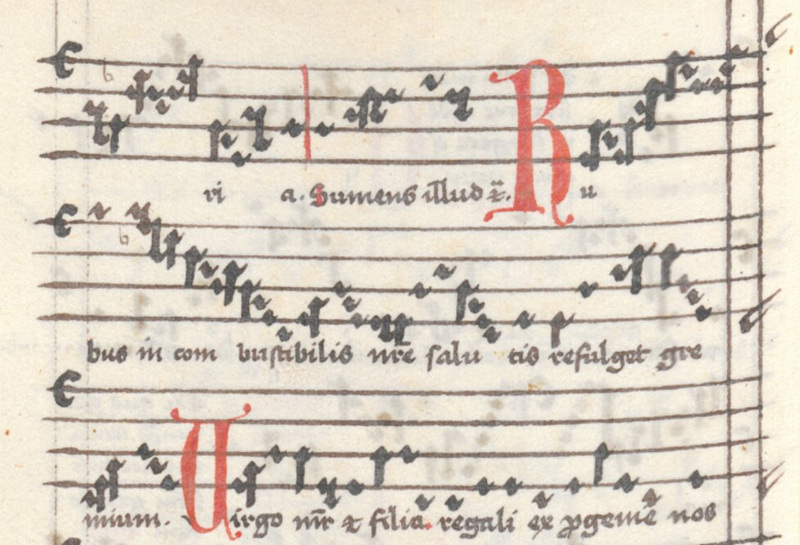 ri a. Sumens illud ⁊. Ru
bus in com bustibilis nr̄e salu tis refulget gre
mium. Uirgo mr̄ ⁊ filia regali ex ꝓgenie nos